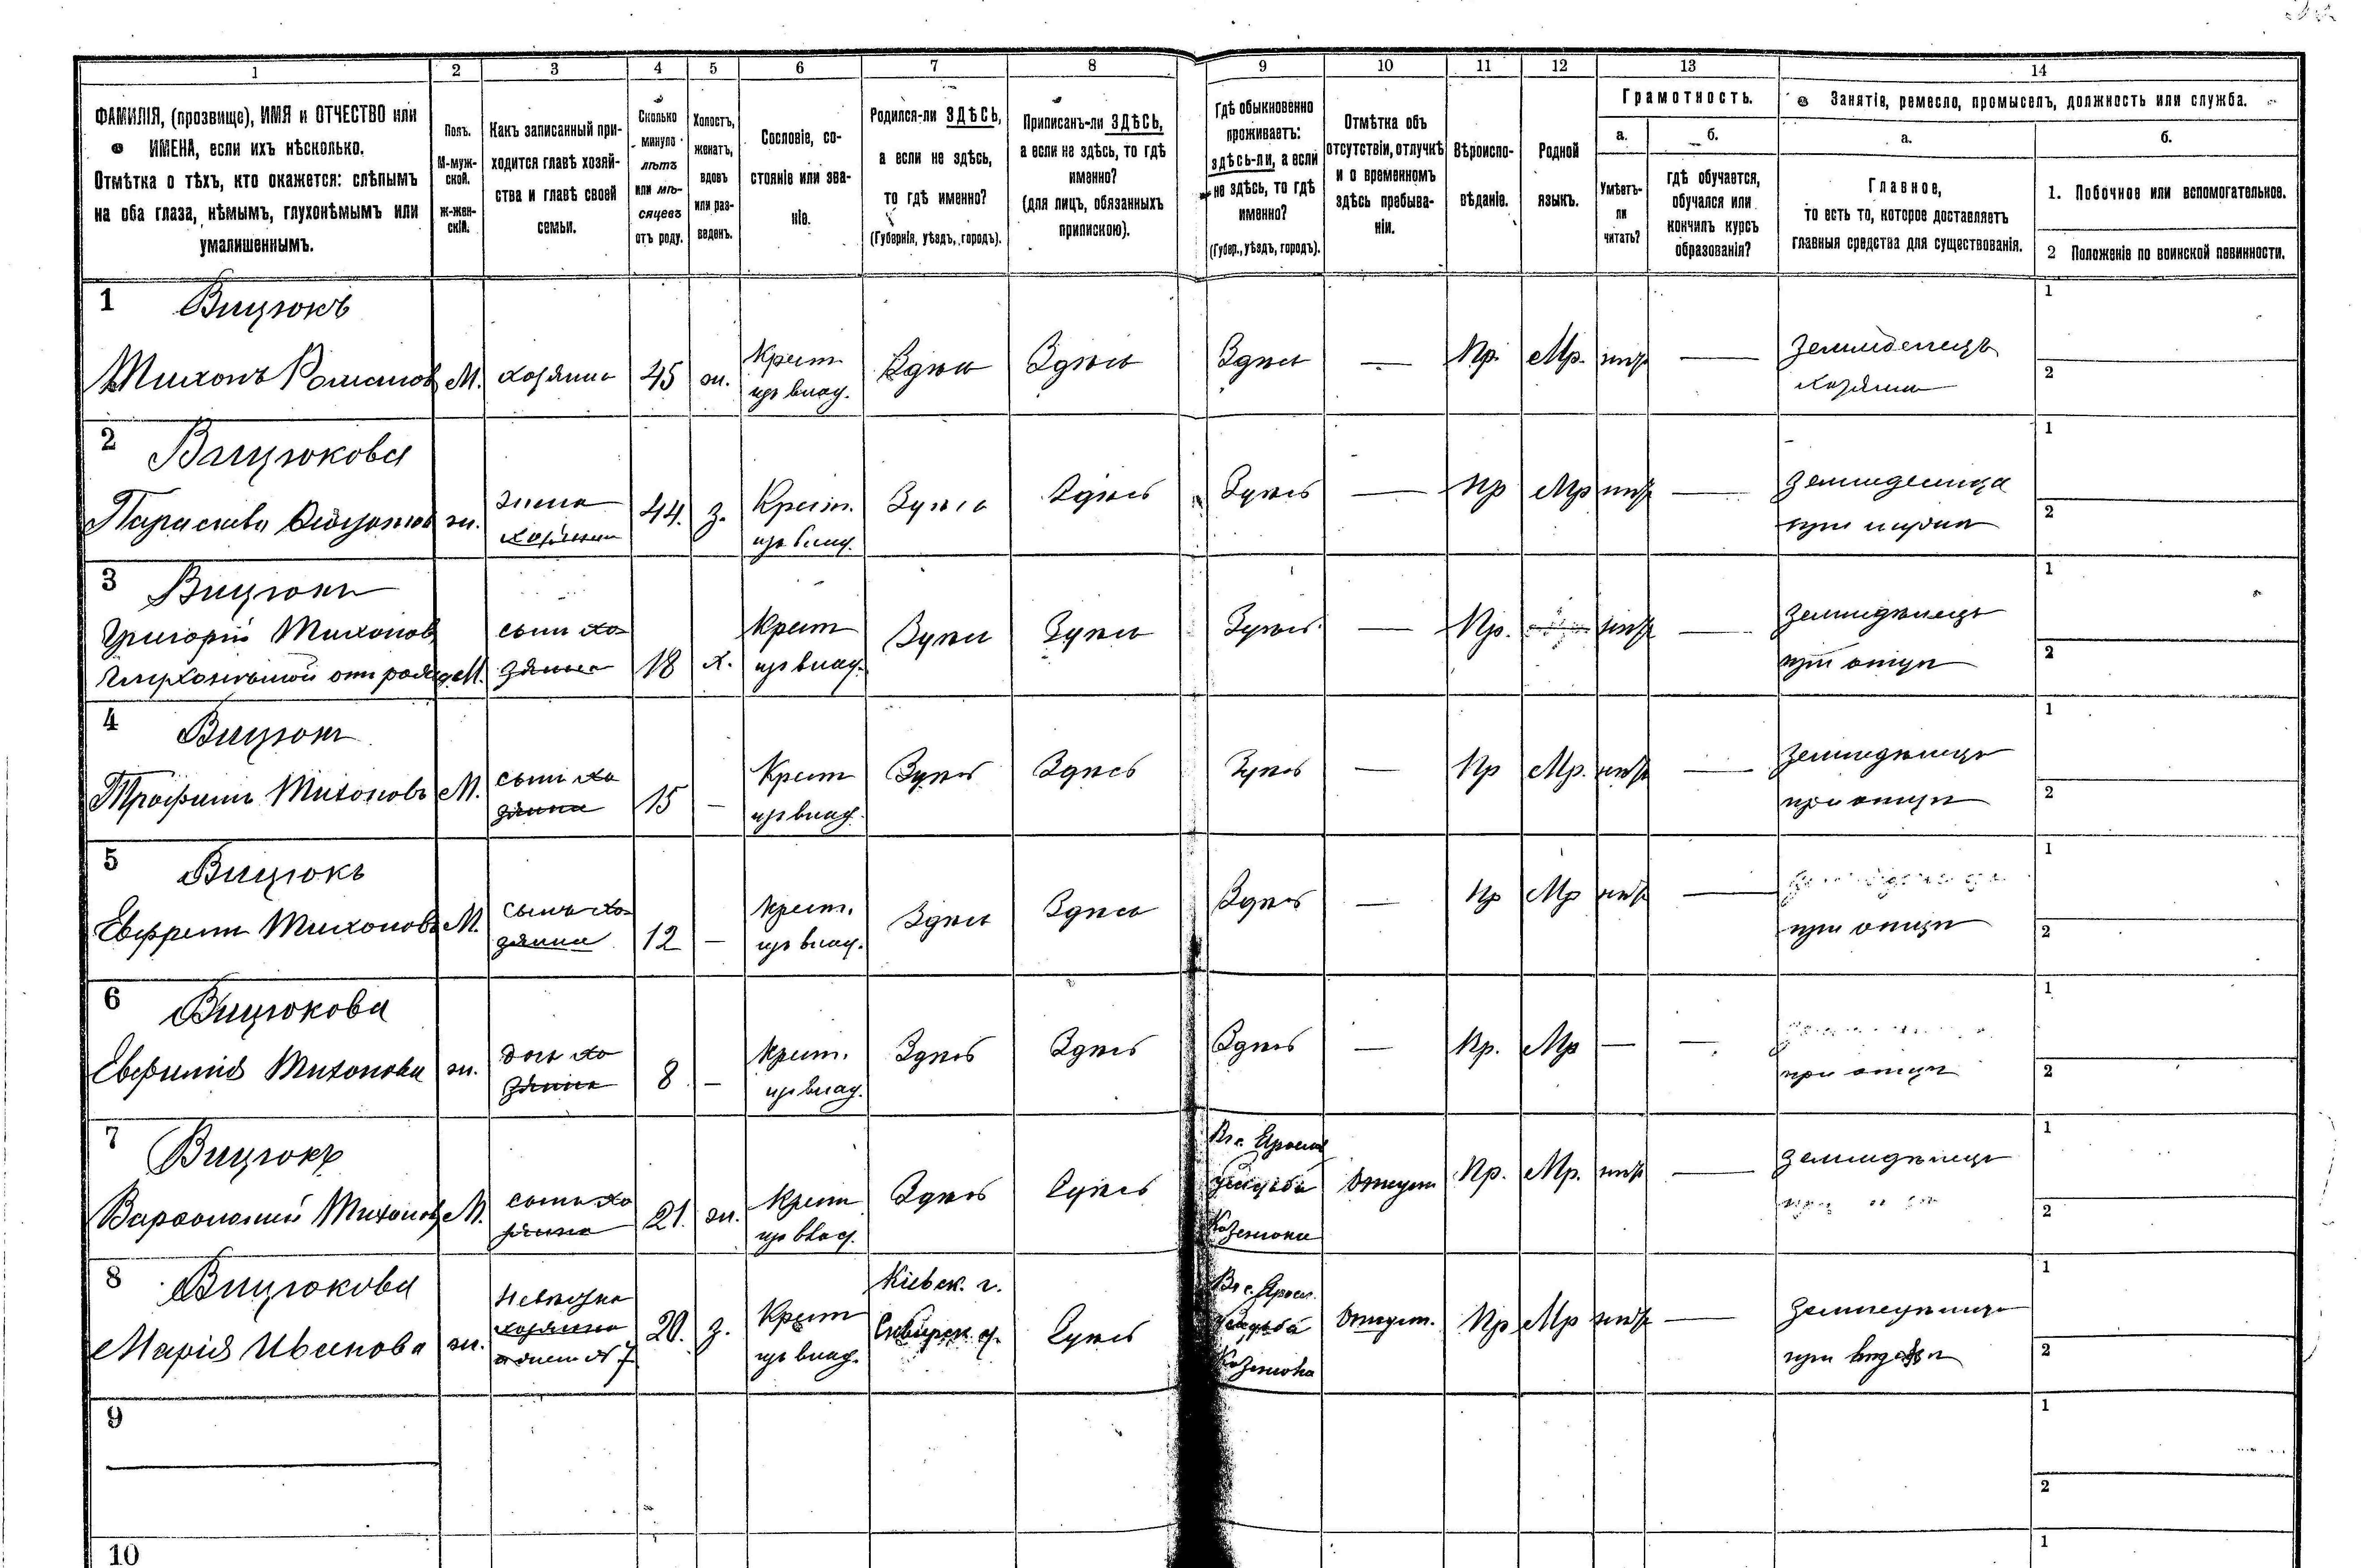 1 2 3 4 5 6 7 8 9 10 11 12 13 14
ФАМИЛІЯ, (прозвище), ИМЯ и ОТЧЕСТВО или
ИМЕНА, если ихъ нѣсколько.
Отмѣтка о тѣхъ, кто окажется: слѣпымъ
на оба глаза, нѣмымъ, глухонѣмымъ или
умалишеннымъ.
Полъ.
М-муж-
ской.
ж-жен-
скій.
Какъ записанный при-
ходится главѣ хозяй-
ства и главѣ своей
семьи.
Сколько
минуло
лѣтъ
или мѣ-
сяцевъ
отъ роду.
Холостъ,
женатъ,
вдовъ
или раз-
веденъ.
Сословіе, со-
стояніе или зва-
ніе.
Родился-ли ЗДѢСЬ,
а если не здѣсь,
то гдѣ именно?
(Губернія, уѣздъ, городъ).
Приписанъ-ли ЗДѢСЬ,
а если не здѣсь, то гдѣ
именно?
(для лицъ, обязанныхъ
припискою).
Гдѣ обыкновенно
проживаетъ:
здѣсь-ли, а если
не здѣсь, то гдѣ
именно?
(Губер., уѣздъ, городъ).
Отмѣтка объ
отсутствіи, отлучкѣ
и о временномъ
здѣсь пребыва-
ніи.
Вѣроиспо-
вѣданіе.
Родной
языкъ.
Грамотность.
а.
Умѣетъ-
ли
читать?
б.
гдѣ обучается,
обучался или
кончилъ курсъ
образованія?
Занятіе, ремесло, промыселъ, должность или служба.
а.
Главное,
то есть то, которое доставляетъ
главныя средства для существованія.
б.
1. Побочное или вспомогательное.
2 Положеніе по воинской повинности.
1 Вицюкъ
Тихонъ Романовъ М. хозяинъ 45 ж. Крест. изъ влад. Здѣсь Здѣсь Здѣсь — Пр. Мр. нѣтъ — Земледѣлецъ
хозяинъ
1
2
2 Вицюкова
Параскева ж. жена
хозяина 44. з. Крест. изъ влад. Здѣсь Здѣсь Здѣсь — Пр Мр нѣтъ —
при мужѣ
1
2
3 Вицюкъ
Григорій Тихоновъ
глухонѣмой отъ рожд. М. сынъ хо-
зяина 18 х. Крест изъ влад. Здѣсь Здѣсь Здѣсь — Пр. нѣтъ — Земледѣлецъ
при отцѣ
1
2
4 Вицюкъ
Трофимъ Тихоновъ М. сынъ хо
зяина 15 — Крест изъ влад. Здѣсь Здѣсь Здѣсь — Пр Мр. нѣтъ — Земледѣлецъ
при отцѣ
1
2
5 Вицюкъ
Ефремъ Тихоновъ М. сынъ хо-
зяина 12 — Крест. изъ влад. Здѣсь Здѣсь Здѣсь — Пр Мр нѣтъ —
при отцѣ
1
2
6 Вицюкова
Евфимія Тихонова ж. дочь хо
зяина 8 — Крест. изъ влад. Здѣсь Здѣсь Здѣсь — Пр. Мр — —
при отцѣ
1
2
7 Вицюкъ
Варфоломей Тихоновъ М. сынъ хо
зяина 21. ж. Крест изъ влад. Здѣсь Здѣсь усадьба Пр. Мр. нѣтъ — Земледѣлецъ
1
2
8 Вицюкова
Марія Иванова ж. Невѣстка
хозяина
№ 7 20. з. Крест изъ влад. Кіевск. г. Здѣсь усадьба Пр Мр нѣтъ —
при
1
2
9
1
2
10
1